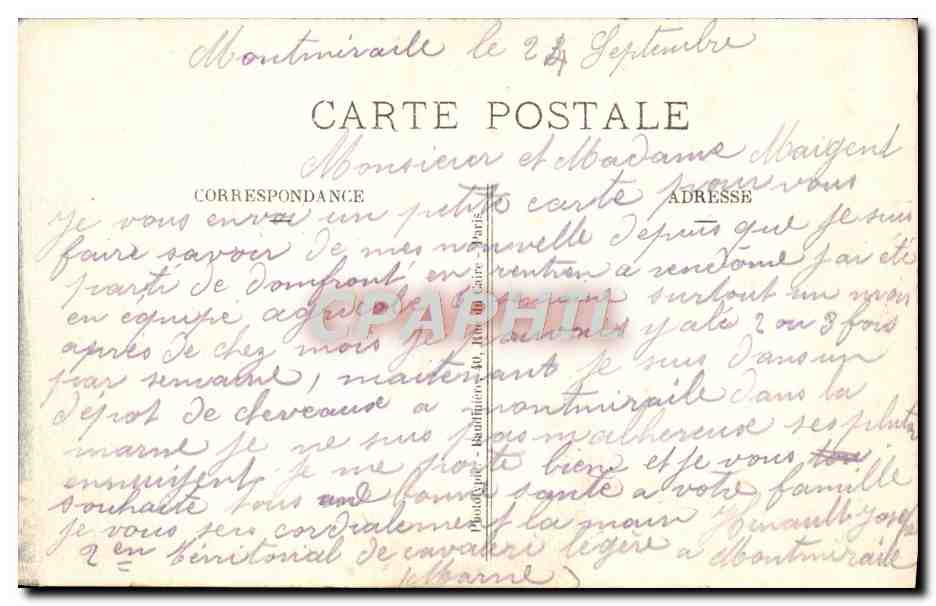 Montmiraile le 24 Septembre
CARTE POSTALE
Monsieur et Madame Maigent
CORRESPONDANCE
ADRESSE
je vous envoi un petite carte pour vous
faire savoir de mes nouvelle depuis que je suis
parti de domfront en rentien a vendôme j'ai été
en equipe agricole 6 semaine surtout un mois
après de chez mois je pouvais y alé 2 ou 3 fois
par semaine, maitenant je suis dans un
dépot de cheveaux a montmiraile dans la
marne je ne suis pas malhereux ses plutot
ennuijent je me porte bien et je vous
souhaite tous une bonne santé a votre famille
je vous sers cordialement la main Hinault Joseph
2en térritorial de cavaleri légère a Montmiraile
Marne)
Phototypie - Baudinière, 40, Rue du Caire - Paris
CPAPHIL